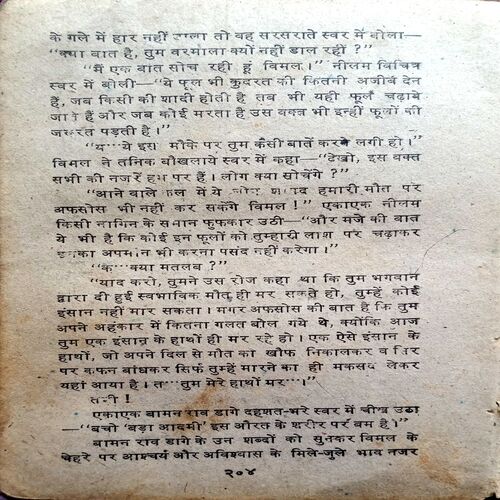 के गले में हार नहीं डाला तो वह सरसराते स्वर में बोला—
“क्या बात है, तुम वरमाला क्यों नहीं डाल रहीं ?”
“मैं एक बात सोच रही हूं विमल।” नीलम विचित्र
स्वर में बोली—“ये फूल भी कुदरत की कितनी अजीब देन
हैं, जब किसी की शादी होती है तब भी यही फूल चढ़ाये
जाते हैं और जब कोई मरता है उस वक्त भी इन्हीं फूलों की
जरूरत पड़ती है।”
“य···ये इस मौके पर तुम कैसी बातें करने लगी हो।”
विमल ने तनिक बौखलाये स्वर में कहा—“देखो, इस वक्त
सभी की नजरें हम पर हैं। लोग क्या सोचेंगे ?”
“आने वाले कल में ये लोग शायद हमारी मौत पर
अफसोस भी नहीं कर सकेंगे विमल !” एकाएक नीलम
किसी नागिन के समान फुफकार उठी—“और मजे की बात
ये भी है कि कोई इन फूलों को तुम्हारी लाश पर चढ़ाकर
इनका अपमान भी करना पसंद नहीं करेगा।”
“क···क्या मतलब ?”
“याद करो, तुमने उस रोज कहा था कि तुम भगवान
द्वारा दी हुई स्वभाविक मौत ही मर सकते हो, तुम्हें कोई
इंसान नहीं मार सकता। मगर अफसोस की बात है कि तुम
अपने अहंकार में कितना गलत बोल गये थे, क्योंकि आज
तुम एक इंसान के हाथों ही मर रहे हो। एक ऐसे इंसान के
हाथों, जो अपने दिल से मौत का खौफ निकालकर व सिर
पर कफन बांधकर सिर्फ तुम्हें मारने का ही मकसद लेकर
यहां आया है। त···तुम मेरे हाथों मर···।”
तभी !
एकाएक बामन राव डागे दहशत-भरे स्वर में चीख उठा
—“बचो ‘बड़ा आदमी’ इस औरत के शरीर पर बम है।”
बामन राव डागे के उन शब्दों को सुनकर विमल के
चेहरे पर आश्चर्य और अविश्वास के मिले-जुले भाव नजर
२०४